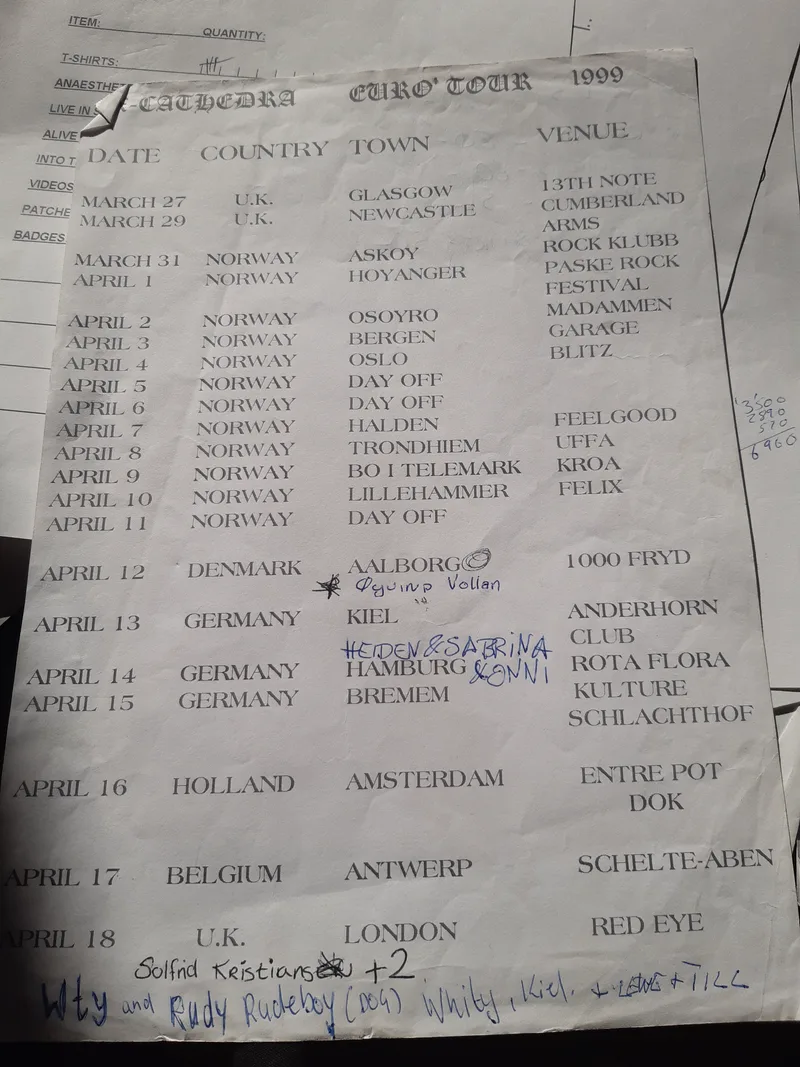 ITEM: QUANTITY:
T-SHIRTS:
LIVE IN
ALIVE
INTO T
VIDEOS
PATCHE
BADGES
-CATHEDRA EURO' TOUR 1999
DATE COUNTRY TOWN VENUE
MARCH 27 U.K. GLASGOW 13TH NOTE
MARCH 29 U.K. NEWCASTLE CUMBERLAND
ARMS
MARCH 31 NORWAY ASKOY ROCK KLUBB
APRIL 1 NORWAY HOYANGER PASKE ROCK
FESTIVAL
APRIL 2 NORWAY OSOYRO MADAMMEN
APRIL 3 NORWAY BERGEN GARAGE
APRIL 4 NORWAY OSLO BLITZ
APRIL 5 NORWAY DAY OFF
APRIL 6 NORWAY DAY OFF
APRIL 7 NORWAY HALDEN FEELGOOD
APRIL 8 NORWAY TRONDHIEM UFFA
APRIL 9 NORWAY BO I TELEMARK KROA
APRIL 10 NORWAY LILLEHAMMER FELIX
APRIL 11 NORWAY DAY OFF
APRIL 12 DENMARK AALBORG 1000 FRYD
Vollan
APRIL 13 GERMANY KIEL ANDERHORN
CLUB
HEIDEN & SABRINA
& ONNI
APRIL 14 GERMANY HAMBURG ROTA FLORA
APRIL 15 GERMANY BREMEM KULTURE
SCHLACHTHOF
APRIL 16 HOLLAND AMSTERDAM ENTRE POT
DOK
APRIL 17 BELGIUM ANTWERP SCHELTE-ABEN
APRIL 18 U.K. LONDON RED EYE
Solfrid Kristians +2
Wty and Rudy Rudeboy (DOG) Whity, Kiel. + + TILL
3500
2890
570
6960